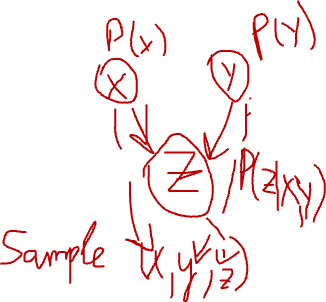 P(x) P(Y)
X Y
Z
P(Z|X,Y)
Sample (x,y,z)